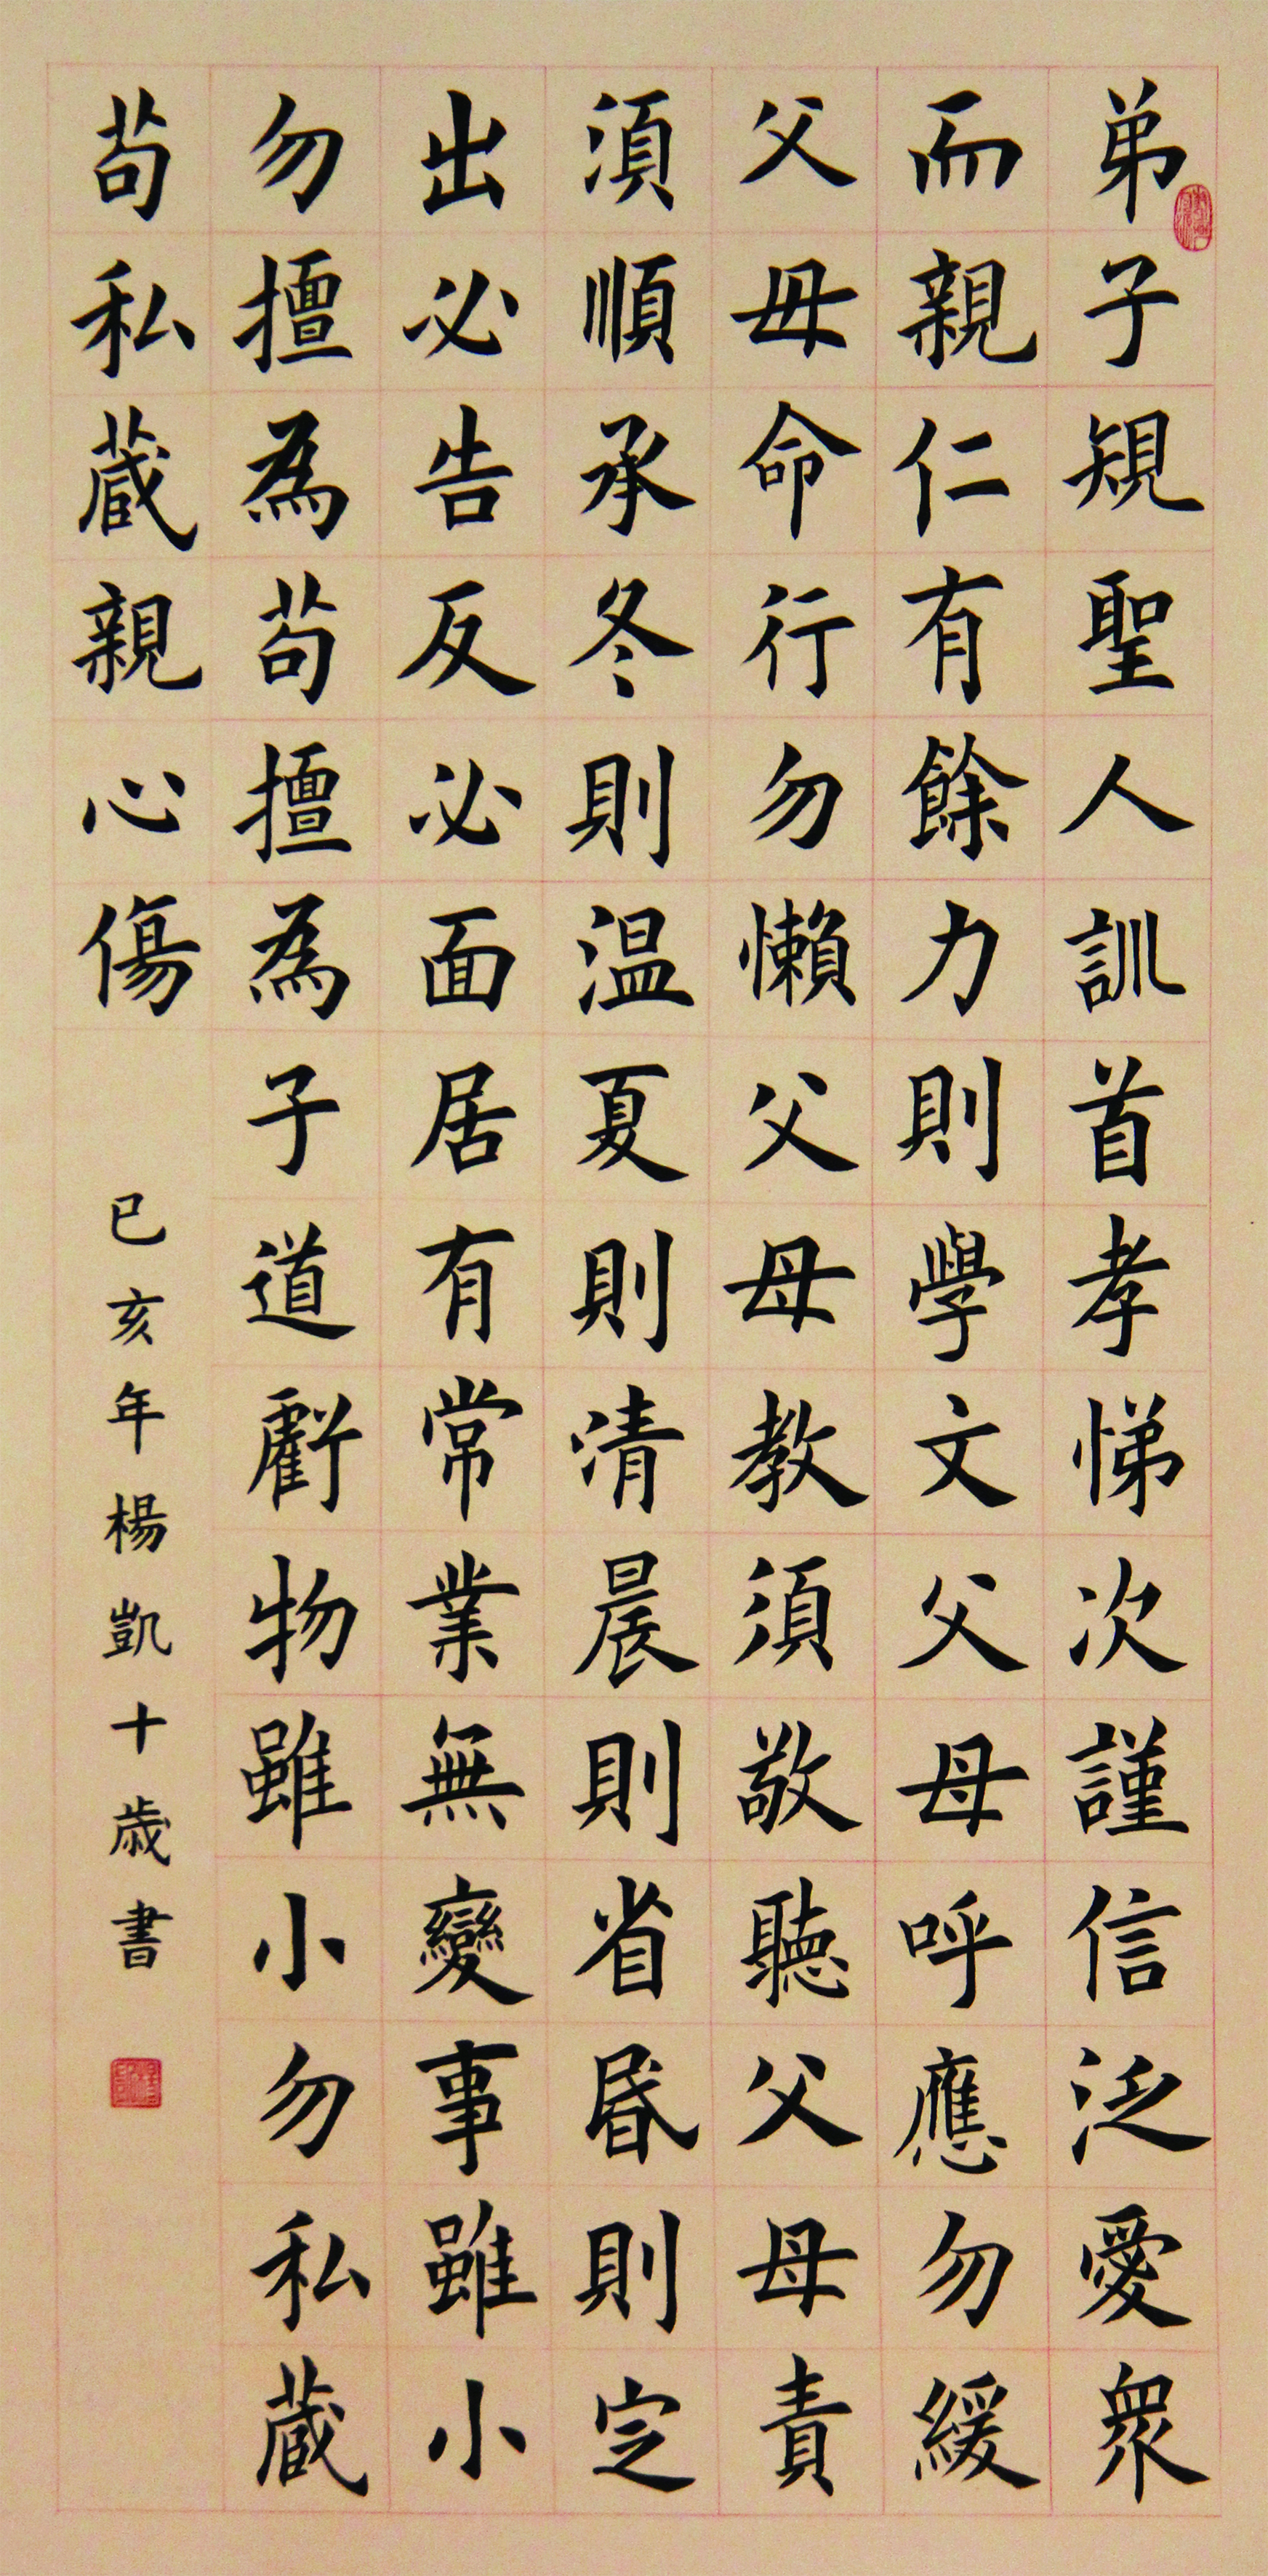 弟子規聖人訓首孝悌次謹信泛愛衆
而親仁有餘力則學文父母呼應勿緩
父母命行勿懶父母教須敬聽父母責
須順承冬則温夏則清晨則省昬則定
出必告反必面居有常業無變事雖小
勿擅為苟擅為子道虧物雖小勿私蔵
苟私蔵親心傷
已亥年楊凱十歲書